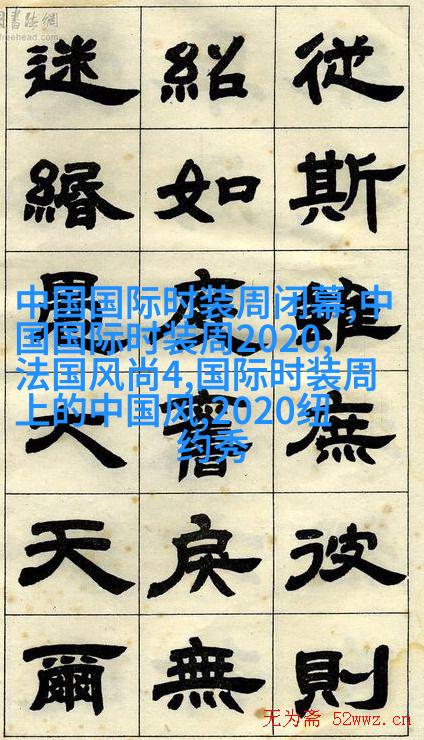 書法網
freehead.com
從斯雖彼則
紹如舊戾無
迷緡大天爾
中国国际时装周闭幕,中
国国际时装周2020,
法国风尚4,国际时装周
上的中国风,2020纽
约秀
无为斋 52wwz.cn